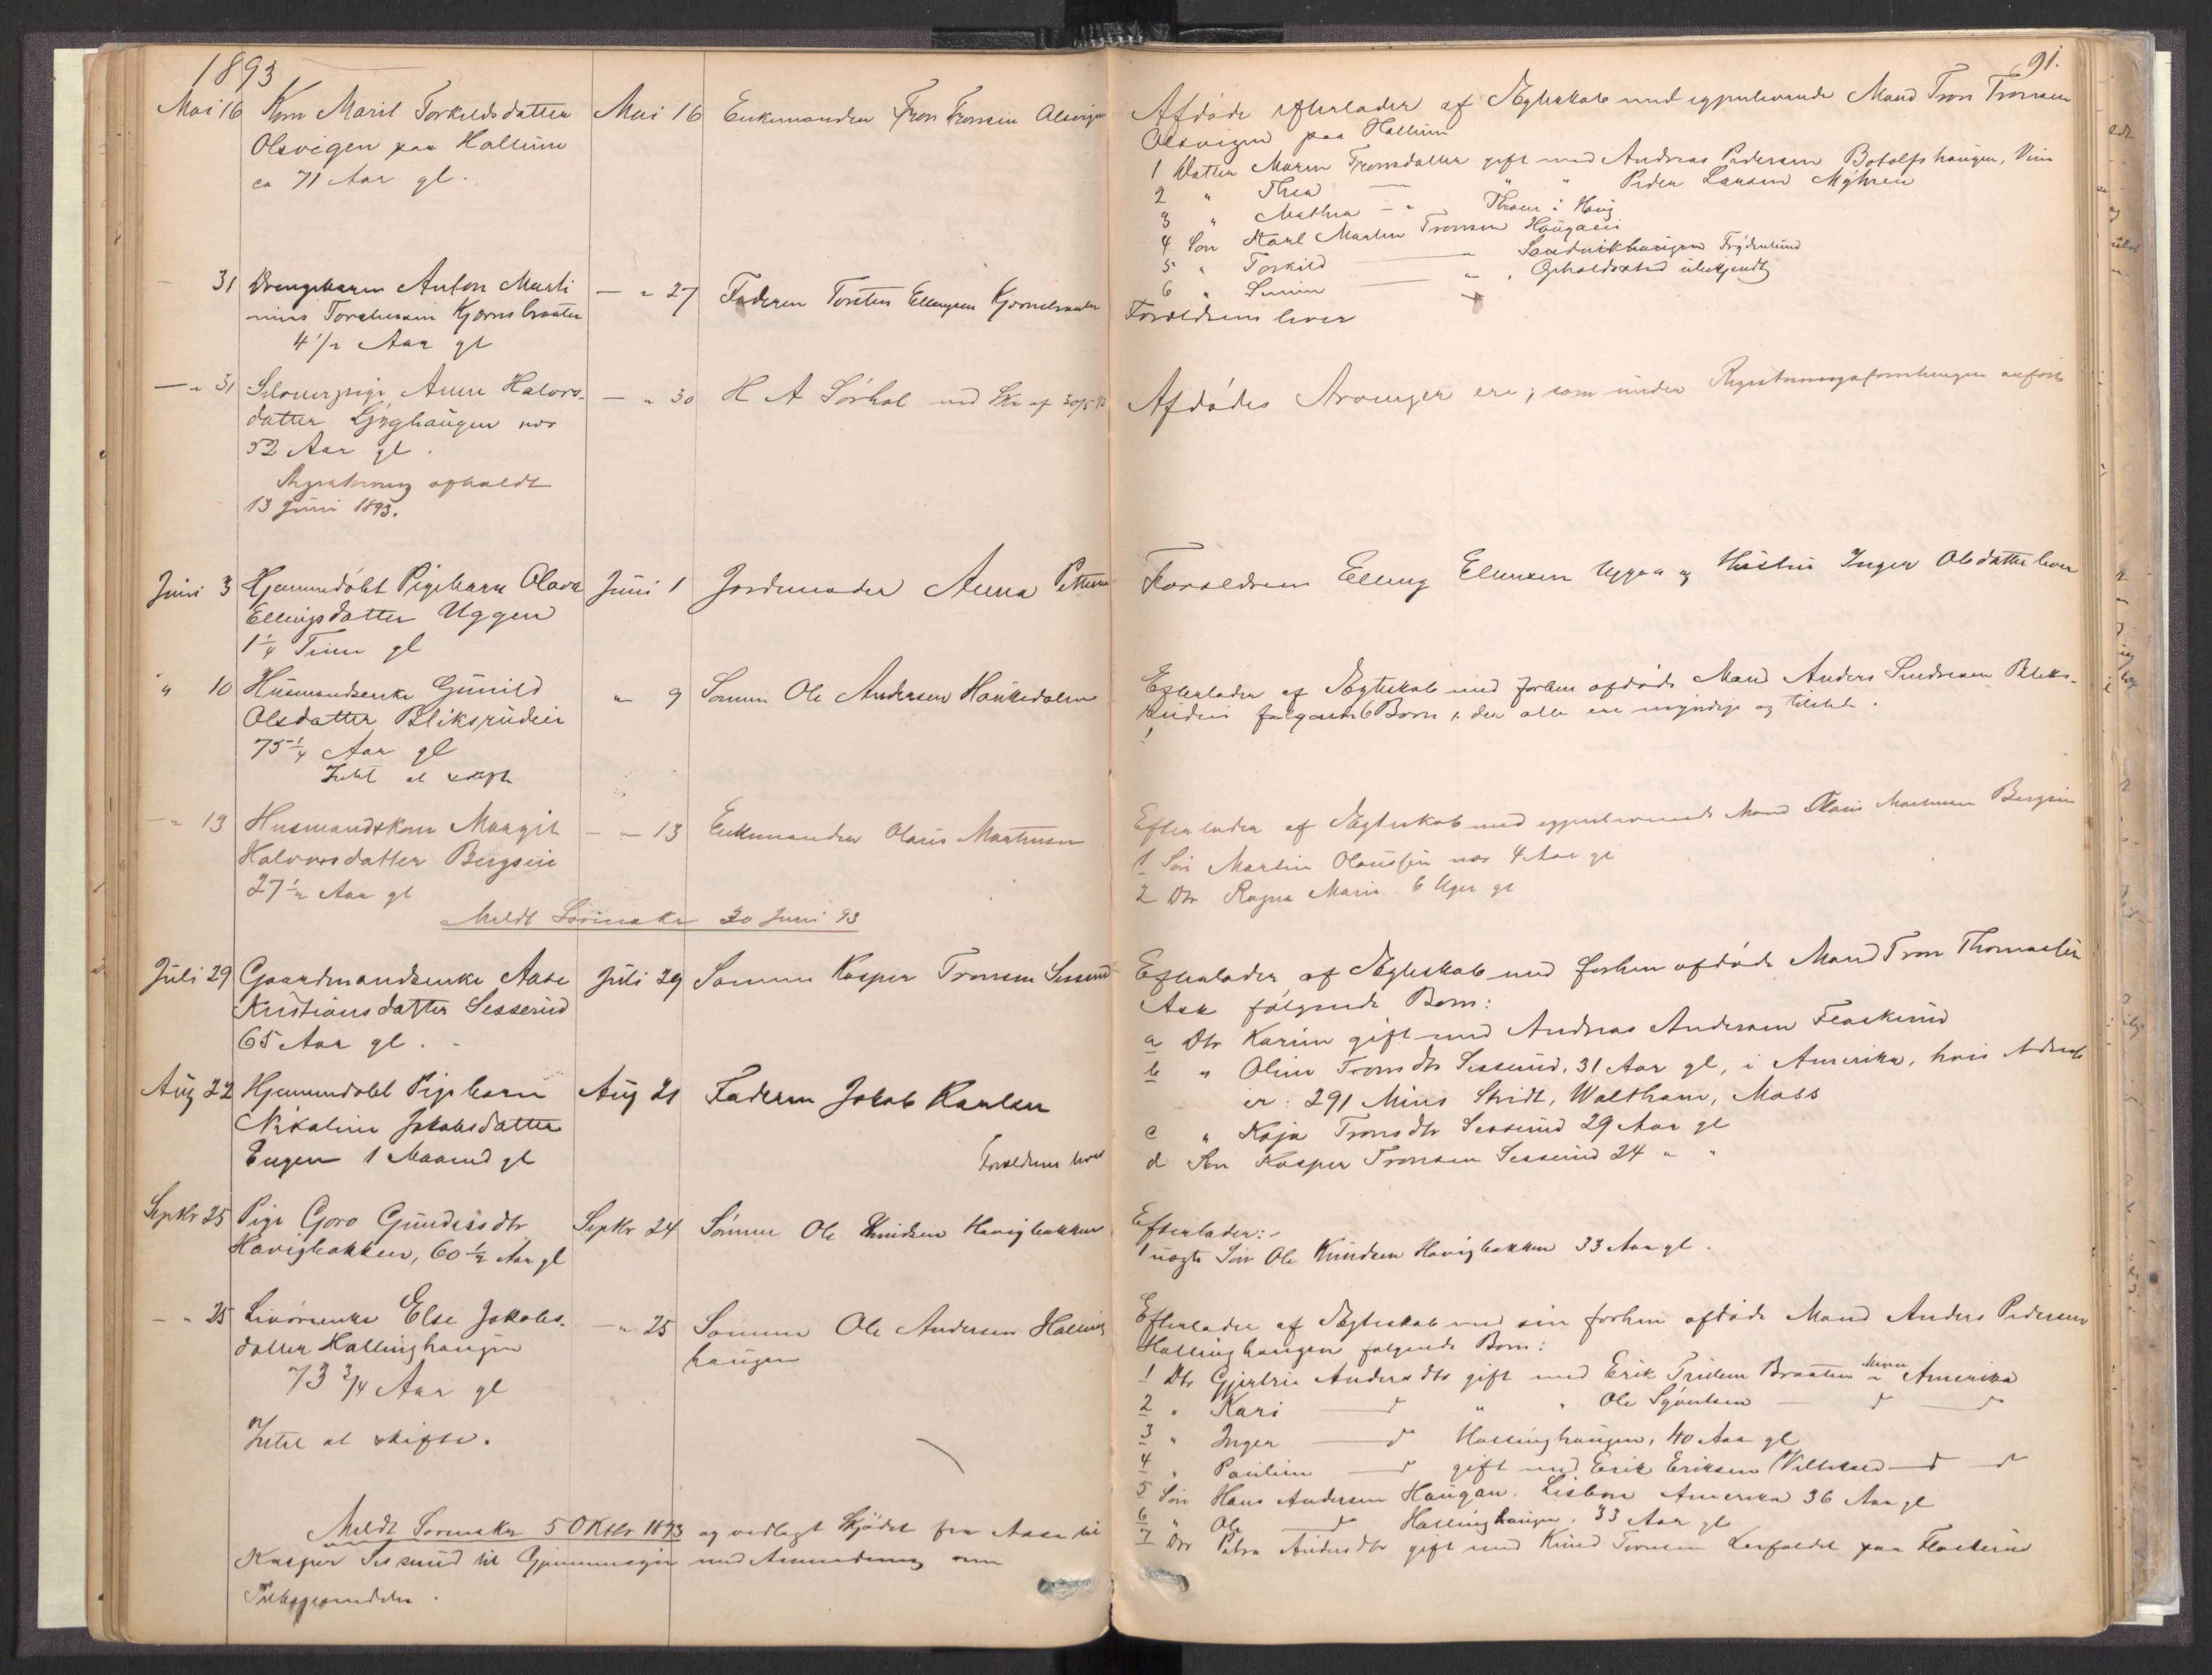 1893
91.
Mai 16 Kone Marit Torkeldsdatter Mai 16 Enkemanden Tron Tronsen Olsvigen
Olsvigen paa Hallum
ca 71 Aar gl.
Afdøde efterlader af Ægteskab med igjenlevende Mand Tron Tronsen
Olsvigen paa Hallum
1 Datter Maren Tronsdatter gift med Andreas Pedersen Botolfshaugen,
2 " Thea — " " Peder Larsen Myhren
3 " Mathea — " Thoen i Haug
4 Søn Karl Martin Tronsen Haugan
5 " Torkild — " Sandvikhaugen Frydenlund
6 " Simen — " , Opholdssted ubekjendt
31 Drengebarn Anton Marti — " 27 Faderen Torsten Ellingsen Kjernsbraaten
nius Torstensen Kjernsbraaten
4 1/2 Aar gl
Forældrene lever
— " 31 Pige Anne Halvors- — " 30 H A Sørhol ved Skr af 30/5 93
datter Lyghaugen nor
52 Aar gl.
Registrering afholdt
13 Juni 1893.
Afdødes Arvinger ere, som under Registreringsforretningen anført
Juni 3 Hjemmedøbt Pigebarn Olava Juni 1 Jordemoder Anna Pettersen
Ellingsdatter Uggen
1 1/4 Time gl
Forældrene Elling Ellingsen Uggen og Hustru Inger Olsdatter lever
" 10 Husmandsenke Gunild " 9 Sønnen Ole Andersen Haukedalen
Olsdatter Bliksrudeie
75 1/4 Aar gl
Intet at skifte
Efterlader af Ægteskab med forhen afdøde Mand Anders Bliks-
rudeie følgende 6 Børn, der alle ere myndige og tilstede.
1
— " 13 Husmandskone Margit — " 13 Enkemanden Olaus Martinsen
Halvorsdatter Bergseie
27 1/2 Aar gl
Efterlader af Ægteskab med igjenlevende Mand Olaus Martinsen Bergseie
1 Søn Martin Olaussen nær 4 Aar gl
2 Dtr Ragna Marie 6 Uger gl
Meldt Sorenskr 30 Juni 93
Juli 29 Gaardmandsenke Aase Juli 29 Sønnen Kasper Tronsen Sesserud
Kristiansdatter Sesserud
65 Aar gl.
Efterlader af Ægteskab med forhen afdøde Mand Tron Thomassen
Ask følgende Børn:
a Dtr Karine gift med Andreas Andersen Flaskerud
b " Oline Tronsdtr Sesserud, 31 Aar gl, i Amerika, hvis Adresse
er: 291 Mins Stridt, Waltham, Mass
c " Kaja Tronsdtr Sesserud 29 Aar gl
d Søn Kasper Tronsen Sesserud 24 " "
Aug 22 Hjemmedøbt Pigebarn Aug 21 Faderen Jakob Karlsen
Nikoline Jakobsdatter
Engen 1 Maaned gl
Forældrene lever
Septbr 25 Pige Goro Gundersdtr Septbr 24 Sønnen Ole Knudsen Havigbakken
Havigbakken, 60 1/2 Aar gl
Efterlader:-
1 uægte Søn Ole Knudsen Havigbakken 33 Aar gl.
— " 25 Else Jakobs- — " 25 Sønnen Ole Andersen Halling
datter Hallinghaugen haugen
73 3/4 Aar gl
Intet at skifte.
Efterlader af Ægteskab med sin forhen afdøde Mand Anders Pedersen
Hallinghaugen følgende Børn:
1 Dtr Gjertrue Andersdtr gift med Erik Braaten i Amerika
2 " Kari — " " Ole Syvertsen —
3 " Inger — Hallinghaugen, 40 Aar gl
4 " Pauline — gift med Erik Eriksen
5 Søn Hans Andersen Haugan, Lisbon Amerika 36 Aar gl
6 " Ole — Hallinghaugen, 33 Aar gl
7 Dtr Petra Andersdtr gift med Knud Iversen paa Flaskerud
Meldt Sorenskr 5 Oktbr 1893 og vedlagt Skjødet fra Aase til
Kasper Sesserud til Gjennemsyn med Anmodning om